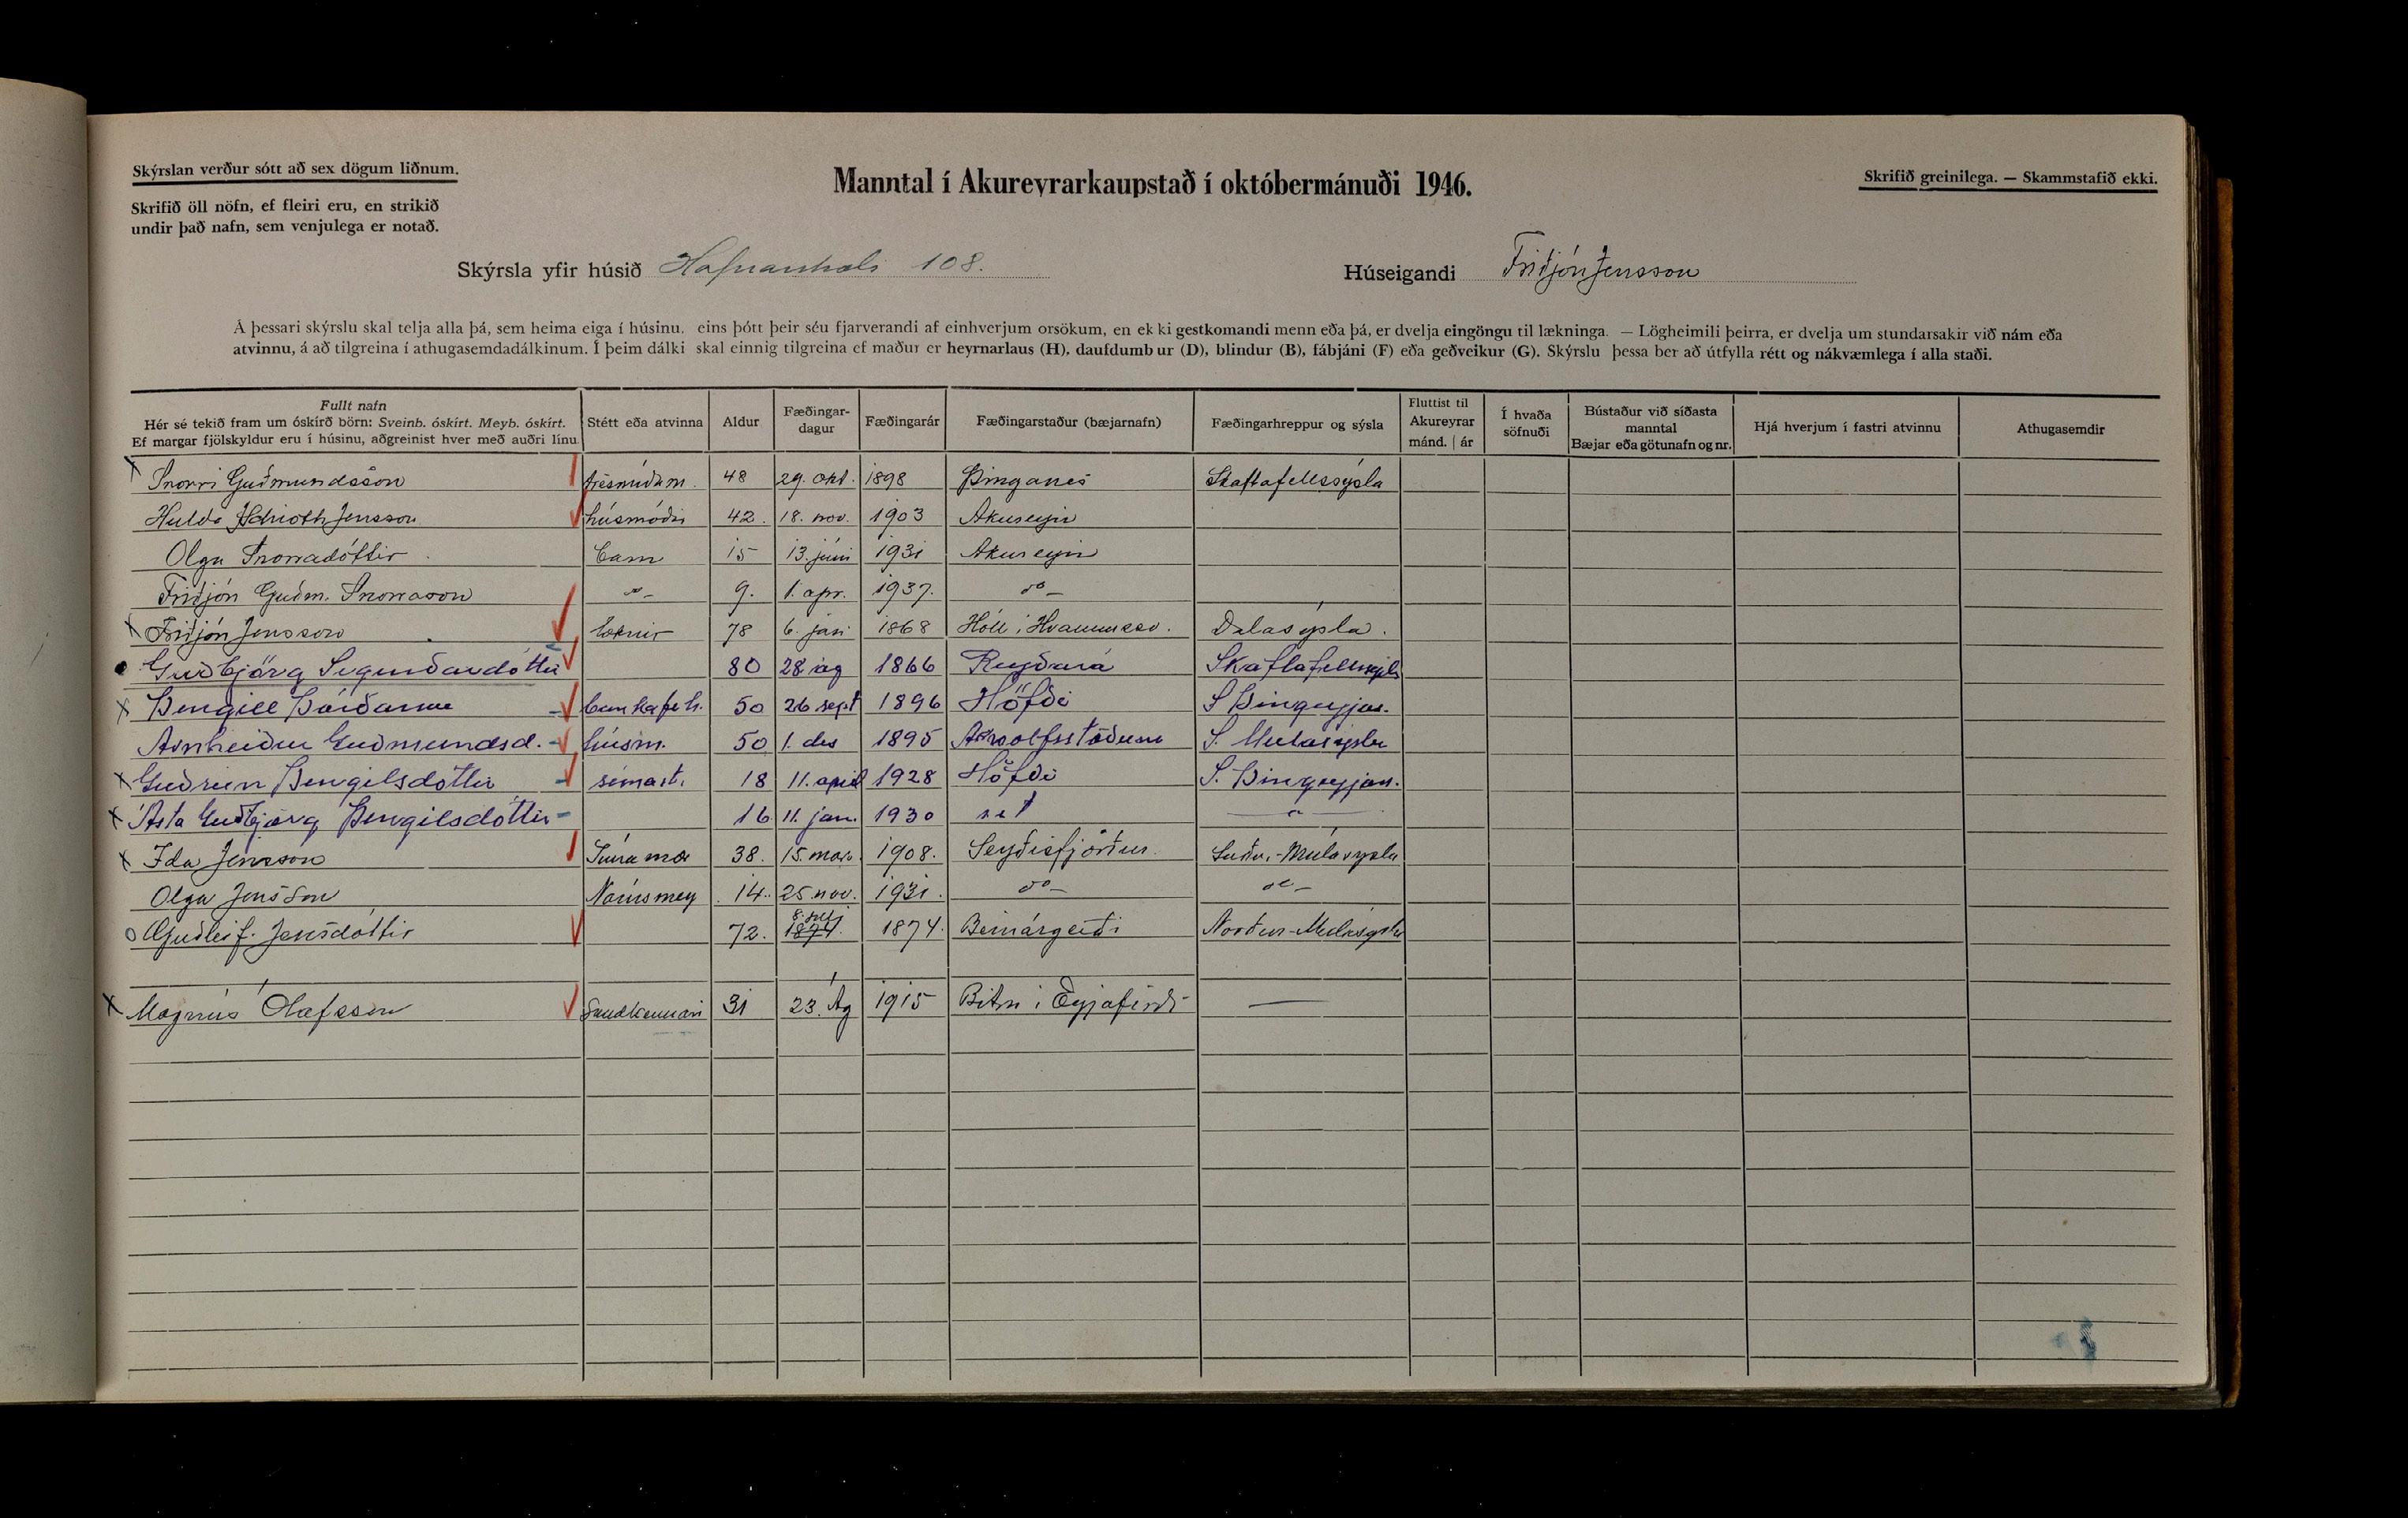 Skýrslan verður sótt að sex dögum liðnum.
Skrifið öll nöfn, ef fleiri eru, en strikið
undir það nafn, sem venjulega er notað.
Manntal í Akureyrarkaupstað í októbermánuði 1946.
Skrifið greinilega. — Skammstafið ekki.
Skýrsla yfir húsið Hafnarstræti 108.
Húseigandi Friðjón Jensson
Á þessari skýrslu skal telja alla þá, sem heima eiga í húsinu, eins þótt þeir séu fjarverandi af einhverjum orsökum, en ekki gestkomandi menn eða þá, er dvelja eingöngu til lækninga. — Lögheimili þeirra, er dvelja um stundarsakir við nám eða
atvinnu, á að tilgreina í athugasemdadálkinum. Í þeim dálki skal einnig tilgreina ef maður er heyrnarlaus (H), daufdumbur (D), blindur (B), fábjáni (F) eða geðveikur (G). Skýrslu þessa ber að útfylla rétt og nákvæmlega í alla staði.
Fullt nafn
Hér sé tekið fram um óskírð börn: Sveinb. óskírt. Meyb. óskírt.
Ef margar fjölskyldur eru í húsinu, aðgreinist hver með auðri línu
Stétt eða atvinna
Aldur
Fæðingar-
dagur
Fæðingarár
Fæðingarstaður (bæjarnafn)
Fæðingarhreppur og sýsla
Fluttist til
Akureyrar
mánd. | ár
Í hvaða
söfnuði
Bústaður við síðasta
manntal
Bæjar eða götunafn og nr.
Hjá hverjum í fastri atvinnu
Athugasemdir
Snorri Guðmundsson trésmíðam. 48 29. okt. 1898 Þinganes Skaftafellssýsla
Hulda Jensson húsmóðir 42. 18. nov. 1903 Akureyri
Olga Snorradóttir barn 15 13. júní 1931 Akureyri
Friðjón Guðm. Snorrason -"- 9. 1. apr. 1937. do -
Friðjón Jensson læknir 78 6. 1868 Hóll í Dalasýsla.
Guðbjörg Sigurðardóttir 80 28 ág 1866 Reyðará
Þengill Þórðarson 50 26 sept 1896 Höfði S Þingeyjar.
Arnheiður Guðmundsd. húsm. 50 1. des 1895 S. Mulasýslu
Guðrún Þengilsdóttir símast. 18 11. april 1928 Höfði S. Þingeyjar.
Ásta Guðbjörg Þengilsdóttir 16 11. jan. 1930
Ida Jensson Símamær 38. 15. mars 1908. Seyðisfjörður. Suður-Múlasýsla
Olga Jensson Námsmey 14. 25 nov. 1931. do - do -
Guðleif. Jensdóttir 72. 8. júlí 1874. 1874. Beinárgerði Norður-Múlasýslu
Magnús Olafsson Sundkennari 31 23. Ág 1915 Bitru í Eyjafirði —